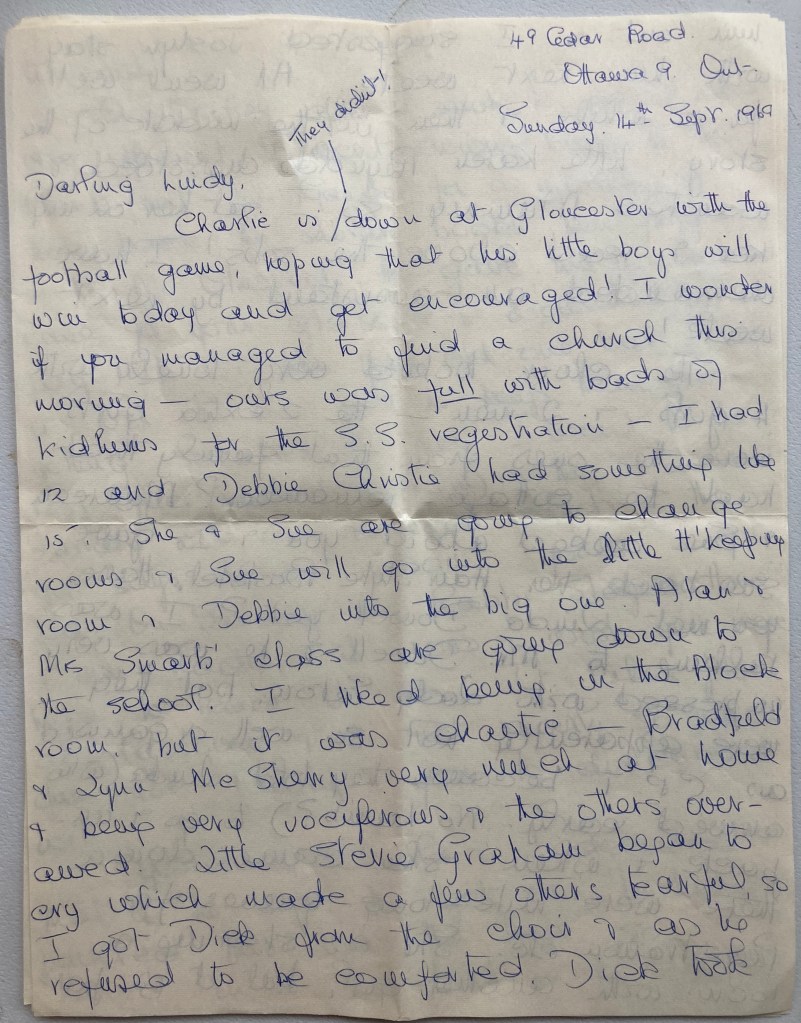 49 Cedar Road.
Ottawa 9. Ont.
Sunday. 14th Sept. 1969
They didn't!
Darling Lindy,
Charlie is down at Gloucester with the
football game, hoping that his little boys will
win today and get encouraged! I wonder
if you managed to find a church this
morning — ours was full with loads of
kidlums for the S.S. registration — I had
12 and Debbie Christie had something like
15. She & Sue are going to change
rooms & Sue will go into the little H'keeping
room & Debbie into the big one. Alan &
Mrs Smart's class are going down to
the school. I liked being in the Block
room, but it was chaotic — Bradfield
& Lynn McSherry very much at home
& being very vociferous & the others over-
awed. Little Stevie Graham began to
cry which made a few others tearful, so
I got Dick from the choir & as he
refused to be comforted, Dick took